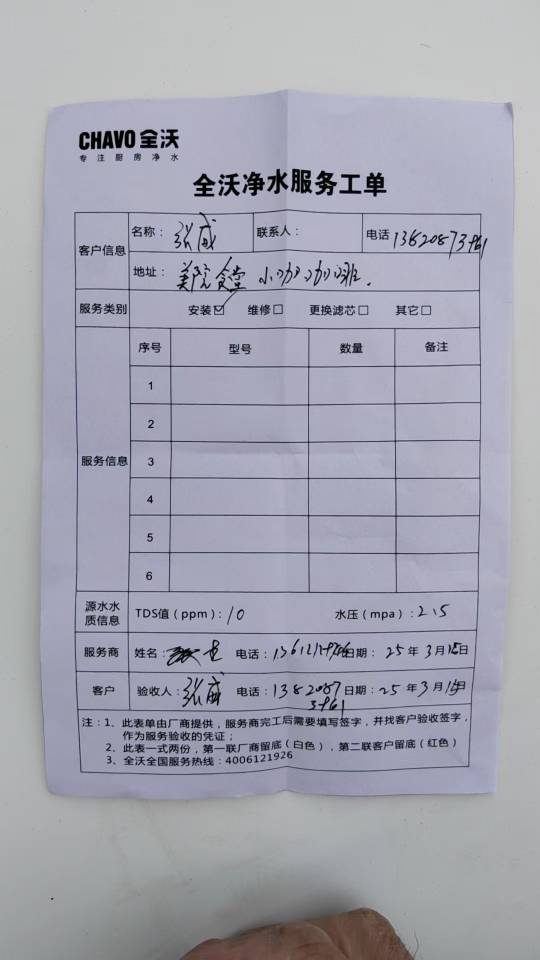 CHAVO 全沃
专注厨房净水
全沃净水服务工单
客户信息
名称：张威 联系人： 电话 13820873961
地址：美院食堂 小 班.
服务类别 安装☑ 维修□ 更换滤芯□ 其它□
服务信息
序号 型号 数量 备注
1
2
3
4
5
6
源水水质信息 TDS值（ppm）：10 水压（mpa）：2.5
服务商 姓名： 电话： 日期：25年3月15日
客户 验收人：张威 电话：13820873961 日期：25年3月15日
注：1、此表单由厂商提供，服务商完工后需要填写签字，并找客户验收签字，
作为服务验收的凭证；
2、此表一式两份，第一联厂商留底（白色），第二联客户留底（红色）
3、全沃全国服务热线：4006121926